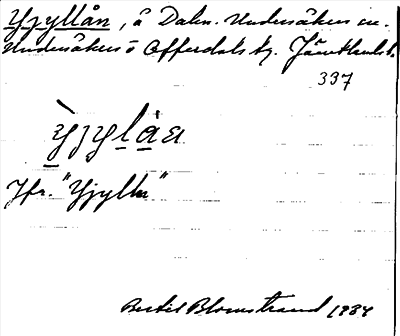 Yjyllån, å Dahn. Undersåkers sn.
Undersåkers o Offerdals tg. Jämtlands l.
337
Jfr. "Yjylln"
Bertil Blomstrand 1934